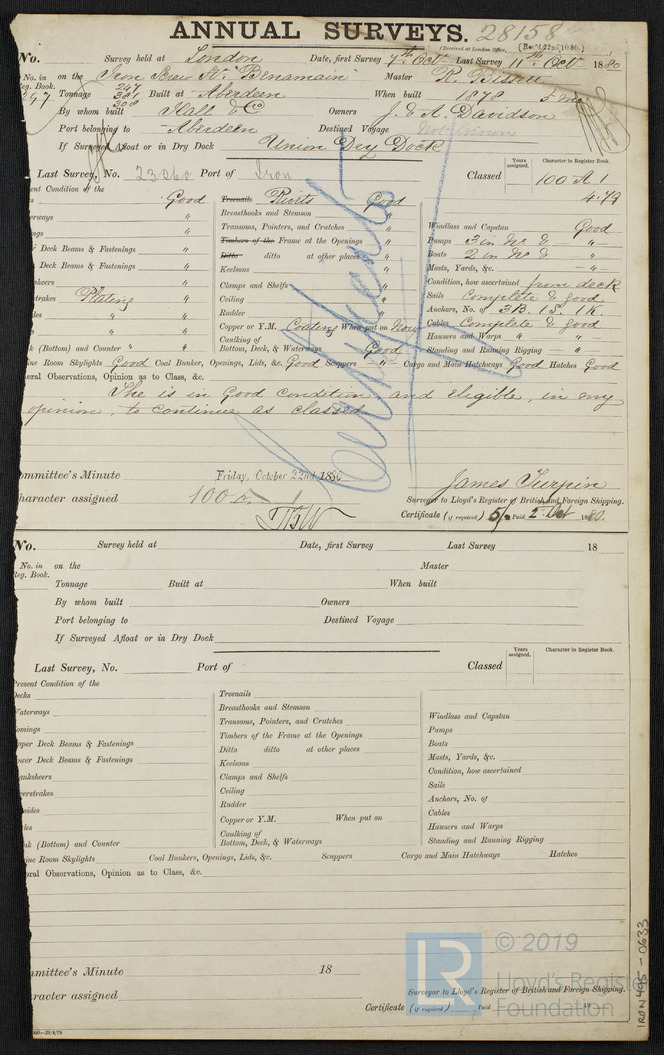 ANNUAL SURVEYS. 28158
(Received at London Office, (Rec'd 22nd 10.80.)
No. Survey held at London Date, first Survey 7th Oct Last Survey 11th Oct 1880
No. in on the Iron Screw Str. "Benamain" Master R. Bissett
Reg. Book. 247
247 Tonnage 381 Built at Aberdeen When built 1878 5 mo
308
By whom built Hall & Co Owners J. & A. Davidson
Port belonging to Aberdeen Destined Voyage Not known
If Surveyed Afloat or in Dry Dock Union Dry Dock
Years assigned. Character in Register Book.
Last Survey, No. 23060 Port of Iron Classed 100 A 1
4.79
sent Condition of the Good
erways "
ings "
Deck Beams & Fastenings "
Deck Beams & Fastenings "
sheers "
strakes Plating "
des " "
" "
k (Bottom) and Counter " "
Treenails Rivits Good
Breasthooks and Stemson "
Transoms, Pointers, and Crutches "
Timbers of the Frame at the Openings "
Ditto ditto at other places "
Keelsons "
Clamps and Shelfs "
Ceiling "
Rudder "
Copper or Y.M. Coating When put on Now
Caulking of
Bottom, Deck, & Waterways Good
Windlass and Capstan Good
Pumps 3 in No. E "
Boats 2 in No. E "
Masts, Yards, &c. "
Condition, how ascertained from deck
Sails Complete & good
Anchors, No. of 3B. 1S. 1K.
Cables Complete & good
Hausers and Warps " "
Standing and Running Rigging "
ine Room Skylights Good Coal Bunker, Openings, Lids, &c. Good Scuppers " Cargo and Main Hatchways Good Hatches Good
eral Observations, Opinion as to Class, &c.
She is in Good condition and eligible, in my
opinion, to continue as classed
Certificate
ommittee's Minute Friday, October 22nd 1880
haracter assigned 100 A 1
James Turpin
Surveyor to Lloyd's Register of British and Foreign Shipping.
Certificate (if required) 5/- Paid 2 Oct 1880.
No. Survey held at Date, first Survey Last Survey 18
No. in on the Master
Reg. Book.
Tonnage Built at When built
By whom built Owners
Port belonging to Destined Voyage
If Surveyed Afloat or in Dry Dock
Years assigned. Character in Register Book.
Last Survey, No. Port of Classed
Present Condition of the
Decks
Waterways
omings
pper Deck Beams & Fastenings
ower Deck Beams & Fastenings
anksheers
perstrakes
sides
des
nk (Bottom) and Counter
Treenails
Breasthooks and Stemson
Transoms, Pointers, and Crutches
Timbers of the Frame at the Openings
Ditto ditto at other places
Keelsons
Clamps and Shelfs
Ceiling
Rudder
Copper or Y.M. When put on
Caulking of
Bottom, Deck, & Waterways
Windlass and Capstan
Pumps
Boats
Masts, Yards, &c.
Condition, how ascertained
Sails
Anchors, No. of
Cables
Hausers and Warps
Standing and Running Rigging
ine Room Skylights Coal Bunkers, Openings, Lids, &c. Scuppers Cargo and Main Hatchways Hatches
ral Observations, Opinion as to Class, &c.
mmittee's Minute 18
racter assigned
Surveyor to Lloyd's Register of British and Foreign Shipping.
Certificate (if required) Paid 18
LR © 2019
Lloyd's Register
Foundation
IRON495-0633